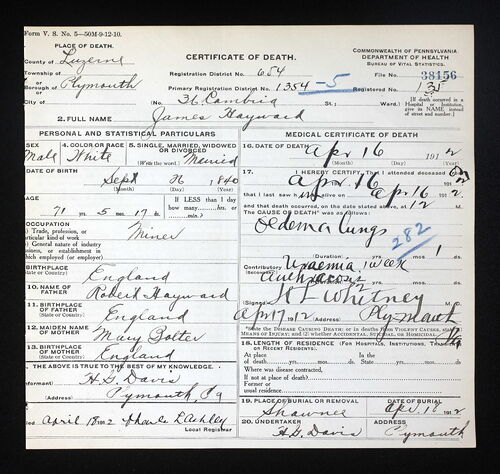 Form V. S. No. 5—50M-9-12-10.
PLACE OF DEATH.
CERTIFICATE OF DEATH.
COMMONWEALTH OF PENNSYLVANIA
DEPARTMENT OF HEALTH
BUREAU OF VITAL STATISTICS.
County of Luzerne
Township of
or
Borough of Plymouth
City of
Registration District No. 654
Primary Registration District No. 1354-5
File No. 38156
Registered No. 135
No. 36 Cambria St. Ward.
[If death occurred in a Hospital or Institution, give its NAME instead of street and number.]
2. FULL NAME James Hayward
PERSONAL AND STATISTICAL PARTICULARS
SEX Male
4. COLOR OR RACE White
5. SINGLE, MARRIED, WIDOWED OR DIVORCED (Write the word) Married
DATE OF BIRTH
Sept 1840
(Month) (Day) (Year)
AGE
71 yrs. 5 mos. 17 ds.
IF LESS than 1 day how many hrs. or min.?
OCCUPATION
Trade, profession, or particular kind of work Miner
General nature of industry, business, or establishment in which employed (or employer)
BIRTHPLACE (State or Country) England
10. NAME OF FATHER Robert Hayward
11. BIRTHPLACE OF FATHER (State or Country) England
12. MAIDEN NAME OF MOTHER Mary
13. BIRTHPLACE OF MOTHER (State or Country) England
THE ABOVE IS TRUE TO THE BEST OF MY KNOWLEDGE.
(Informant) H. G. Davis
(Address) Plymouth Pa
Filed April 18 1912 Local Registrar
MEDICAL CERTIFICATE OF DEATH
16. DATE OF DEATH Apr 16 1912
(Month) (Day) (Year)
17. I HEREBY CERTIFY, That I attended deceased from
Apr 16
that I last saw h alive on Apr 16 1912
and that death occurred, on the date stated above, at 12 M.
The CAUSE OF DEATH* was as follows:
Oedema Lungs
282
(Duration) yrs. mos. 1 ds.
Contributory Uraemia 1 week
(Signed) Whitney
Apr 17 1912 (Address) Plymouth
*State the DISEASE CAUSING DEATH; or in deaths from VIOLENT CAUSES, state MEANS OF INJURY; and whether ACCIDENTAL, SUICIDAL, or HOMICIDAL.
18. LENGTH OF RESIDENCE (FOR HOSPITALS, INSTITUTIONS, TRANSIENTS, OR RECENT RESIDENTS).
At place of death yrs. mos. ds. In the State yrs. mos. ds.
Where was disease contracted,
if not at place of death?
Former or usual residence
19. PLACE OF BURIAL OR REMOVAL Shawnee
DATE OF BURIAL Apr. 1912
20. UNDERTAKER H. G. Davis
ADDRESS Plymouth